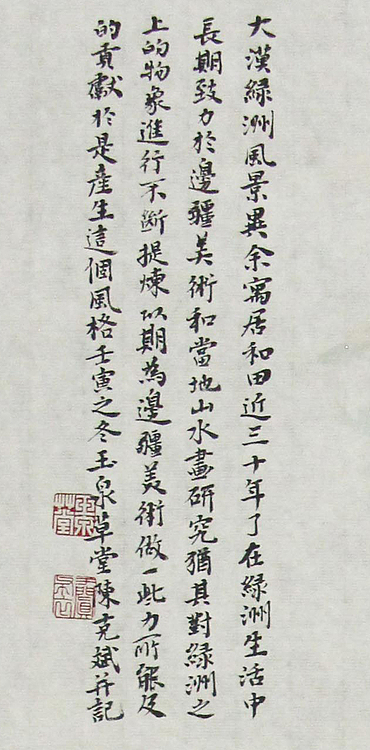 大漠綠洲風景異余寓居和田近三十年了在綠洲生活中
長期致力於邊疆美術和當地山水畫研究猶其對綠洲之
上的物象進行不斷提煉以期為邊疆美術做一些力所能及
的貢獻於是產生這個風格壬寅之冬玉泉草堂陳克斌并記